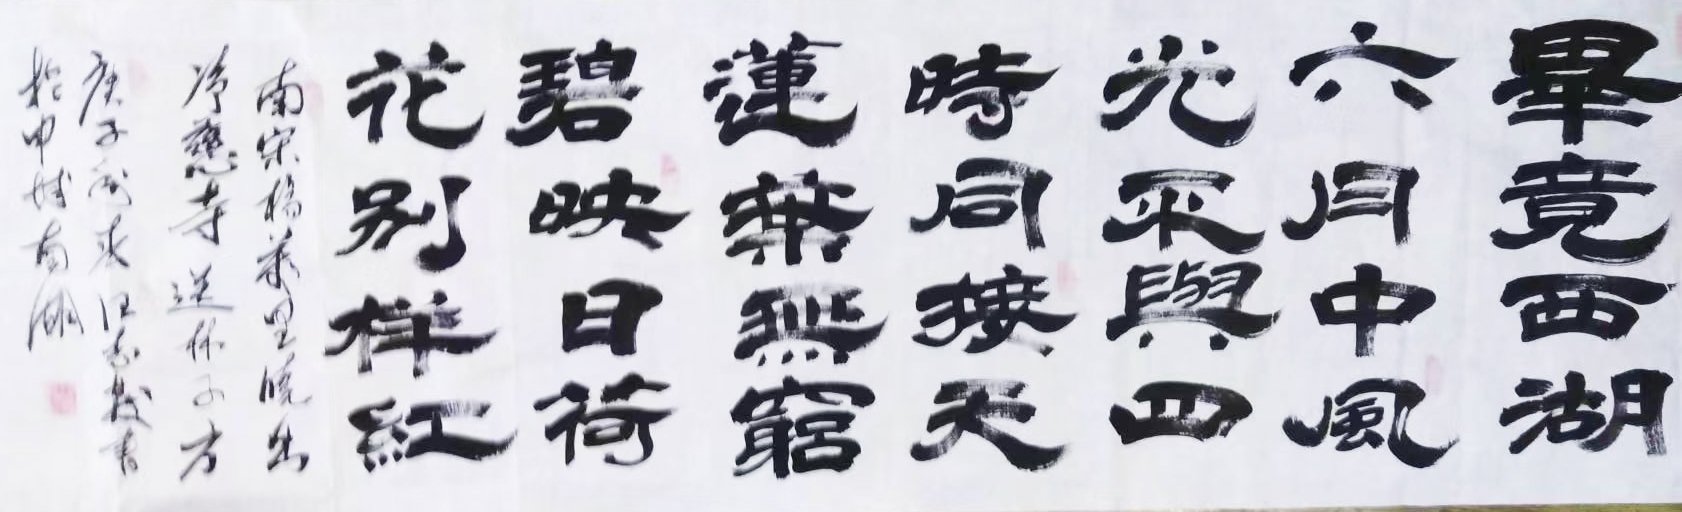 畢竟西湖
六月中風
光不與四
時同接天
蓮葉無窮
碧映日荷
花別样紅
南宋楊萬里曉出
净慈寺送林子方
庚子 書
於申城南湖